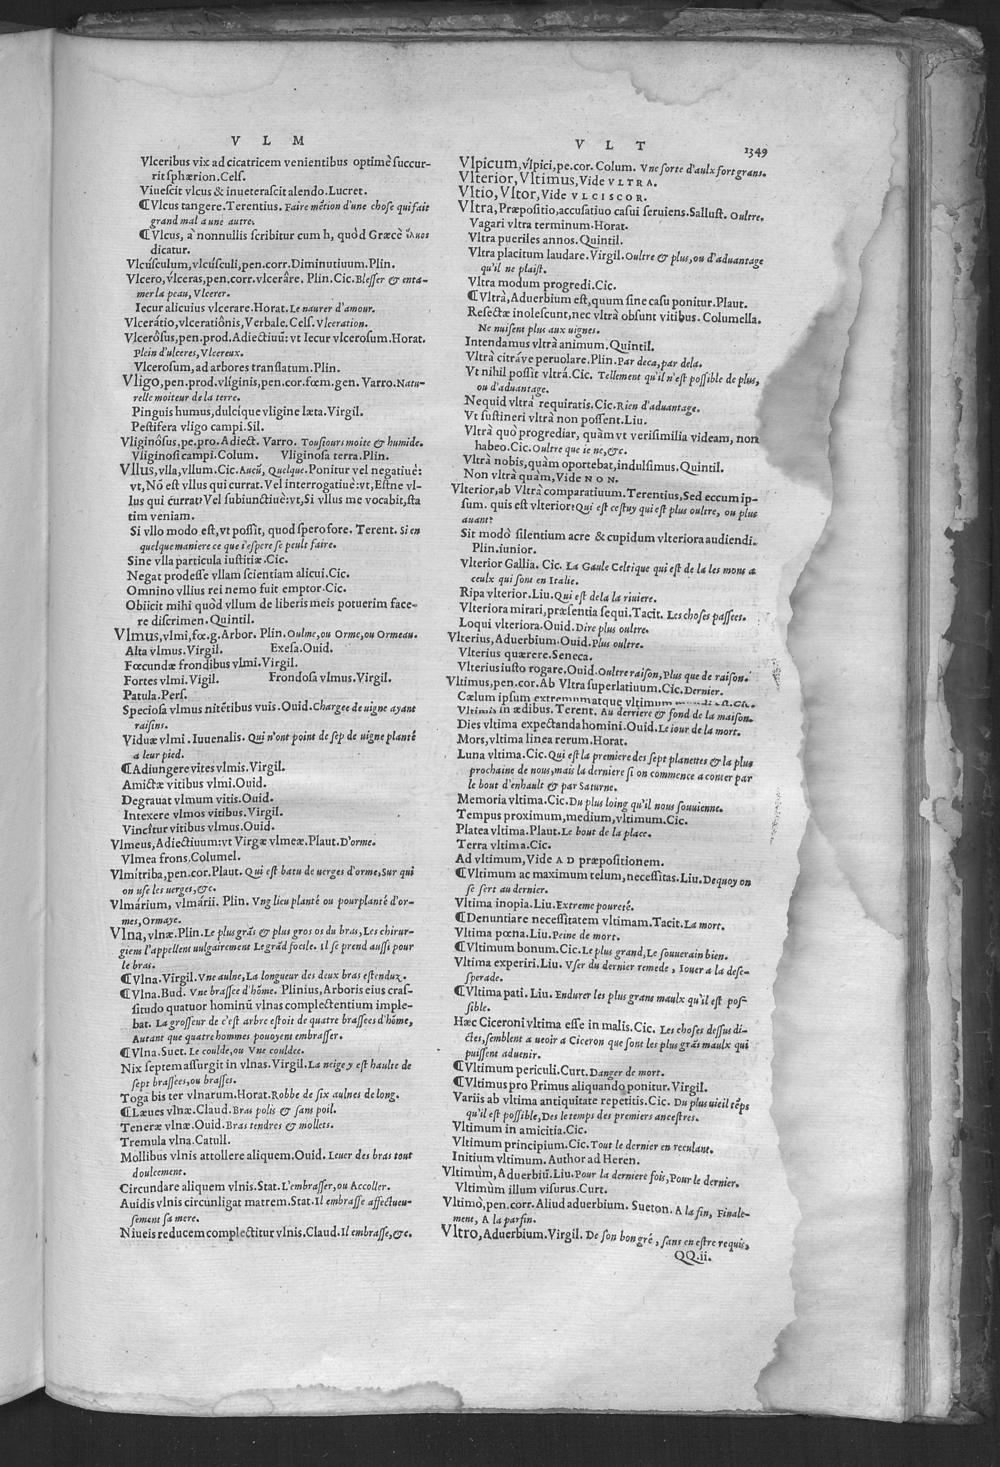 V L M
Vlceribus vix ad cicatricem venientibus optimè succur-
rit sphærion. Cels.
Viuescit vlcus & inueterascit alendo. Lucret.
¶Vlcus tangere. Terentius. Faire mẽtion d'une chose qui fait
grand mal a une autre.
¶Vlcus, à nonnullis scribitur cum h, quòd Græcè
dicatur.
Vlcúsculum, vlcúsculi, pen.corr. Diminutiuum. Plin.
Vlcero, vlceras, pen.corr. vlcerâre. Plin. Cic. Blesser & enta-
mer la peau, Vlcerer.
Iecur alicuius vlcerare. Horat. Le naurer d'amour.
Vlcerátio, vlceratiônis, Verbale. Cels. Vlceration.
Vlcerôsus, pen.prod. Adiectiuũ: vt Iecur vlcerosum. Horat.
Plein d'ulceres, Vlcereux.
Vlcerosum, ad arbores translatum. Plin.
Vligo, pen.prod. vlíginis, pen.cor. fœm.gen. Varro. Natu-
relle moiteur de la terre.
Pinguis humus, dulcíque vligine læta. Virgil.
Pestifera vligo campi. Sil.
Vliginôsus, pe.pro. Adiect. Varro. Tousiours moite & humide.
Vliginosi campi. Colum. Vliginosa terra. Plin.
Vllus, vlla, vllum. Cic. Aucũ, Quelque. Ponitur vel negatiuè:
vt, Nõ est vllus qui currat. Vel interrogatiuè: vt, Estne vl-
lus qui currat? Vel subiunctiuè: vt, Si vllus me vocabit, sta
tim veniam.
Si vllo modo est, vt possit, quod spero fore. Terent. Si en
quelque maniere ce que i'espere se peult faire.
Sine vlla particula iustitiæ. Cic.
Negat prodesse vllam scientiam alicui. Cic.
Omnino vllius rei nemo fuit emptor. Cic.
Obiicit mihi quòd vllum de liberis meis potuerim face-
re discrimen. Quintil.
Vlmus, vlmi, fœ.g. Arbor. Plin. Oulme, ou Orme, ou Ormeau.
Alta vlmus. Virgil. Exesa. Ouid.
Fœcundæ frondibus vlmi. Virgil.
Fortes vlmi. Vigil. Frondosa vlmus. Virgil.
Patula. Pers.
Speciosa vlmus nitẽtibus vuis. Ouid. Chargee de uigne ayant
raisins.
Viduæ vlmi. Iuuenalis. Qui n'ont point de sep de uigne planté
a leur pied.
¶Adiungere vites vlmis. Virgil.
Amictæ vitibus vlmi. Ouid.
Degrauat vlmum vitis. Ouid.
Intexere vlmos vitibus. Virgil.
Vincîtur vitibus vlmus. Ouid.
Vlmeus, Adiectiuum: vt Virgæ vlmeæ. Plaut. D'orme.
Vlmea frons. Columel.
Vlmítriba, pen.cor. Plaut. Qui est batu de uerges d'orme, Sur qui
on use les uerges, &c.
Vlmárium, vlmárii. Plin. Vng lieu planté ou pourplanté d'or-
mes, Ormaye.
Vlna, vlnæ. Plin. Le plus grãs & plus gros os du bras, Les chirur-
giens l'appellent uulgairement Le grãd focile. Il se prend aussi pour
le bras.
¶Vlna. Virgil. Vne aulne, La longueur des deux bras estendux.
¶Vlna. Bud. Vne brassee d'hõme. Plinius, Arboris eius cras-
situdo quatuor hominũ vlnas complectentium imple-
bat. La grosseur de c'est arbre estoit de quatre brassees d'hõme,
Autant que quatre hommes pouoyent embrasser.
¶Vlna. Suet. Le coulde, ou Vne couldee.
Nix septem assurgit in vlnas. Virgil. La neige y est haulte de
sept brassees, ou brasses.
Toga bis ter vlnarum. Horat. Robbe de six aulnes de long.
¶Læues vlnæ. Claud. Bras polis & sans poil.
Teneræ vlnæ. Ouid. Bras tendres & mollets.
Tremula vlna. Catull.
Mollibus vlnis attollere aliquem. Ouid. Leuer des bras tout
doulcement.
Circundare aliquem vlnis. Stat. L'embrasser, ou Accoller.
Auidis vlnis circunligat matrem. Stat. Il embrasse affectueu-
sement sa mere.
Niueis reducem complectitur vlnis. Claud. Il embrasse, &c.
V L T
1349
Vlpicum, vlpici, pe.cor. Colum. Vne sorte d'aulx fort grans.
Vlterior, Vltimus, Vide VLTRA.
Vltio, Vltor, Vide VLCISCOR.
Vltra, Præpositio, accusatiuo casui seruiens. Sallust. Oultre.
Vagari vltra terminum. Horat.
Vltra pueriles annos. Quintil.
Vltra placitum laudare. Virgil. Oultre & plus, ou d'aduantage
qu'il ne plaist.
Vltra modum progredi. Cic.
¶Vltrà, Aduerbium est, quum sine casu ponitur. Plaut.
Resectæ inolescunt, nec vltrà obsunt vitibus. Columella.
Ne nuisent plus aux uignes.
Intendamus vltrà animum. Quintil.
Vltrà citráve peruolare. Plin. Par deca, par dela.
Vt nihil possit vltrá. Cic. Tellement qu'il n'est possible de plus,
ou d'aduantage.
Nequid vltrà requiratis. Cic. Rien d'aduantage.
Vt sustineri vltrà non possent. Liu.
Vltrà quò progrediar, quàm vt verisimilia videam, non
habeo. Cic. Oultre que ie ne, &c.
Vltrà nobis, quàm oportebat, indulsimus. Quintil.
Non vltrà quàm, Vide NON.
Vlterior, ab Vltrà comparatiuum. Terentius, Sed eccum ip-
sum. quis est vlterior? Qui est cestuy qui est plus oultre, ou plus
auant?
Sit modò silentium acre & cupidum vlteriora audiendi.
Plin. iunior.
Vlterior Gallia. Cic. La Gaule Celtique qui est de la les mons a
ceulx qui sont en Italie.
Ripa vlterior. Liu. Qui est dela la riuiere.
Vlteriora mirari, præsentia sequi. Tacit. Les choses passees.
Loqui vlteriora. Ouid. Dire plus oultre.
Vlterius, Aduerbium. Ouid. Plus oultre.
Vlterius quærere. Seneca.
Vlterius iusto rogare. Ouid. Oultre raison, Plus que de raison.
Vltimus, pen.cor. Ab Vltra superlatiuum. Cic. Dernier.
Cælum ipsum extremumatque vltimum
Vltimis in ædibus. Terent. Au derriere & fond de la maison.
Dies vltima expectanda homini. Ouid. Le iour de la mort.
Mors, vltima linea rerum. Horat.
Luna vltima. Cic. Qui est la premiere des sept planettes & la plus
prochaine de nous, mais la derniere si on commence a conter par
le bout d'enhault & par Saturne.
Memoria vltima. Cic. Du plus loing qu'il nous souuienne.
Tempus proximum, medium, vltimum. Cic.
Platea vltima. Plaut. Le bout de la place.
Terra vltima. Cic.
Ad vltimum, Vide AD præpositionem.
¶Vltimum ac maximum telum, necessitas. Liu. Dequoy on
se sert au dernier.
Vltima inopia. Liu. Extreme poureté.
¶Denuntiare necessitatem vltimam. Tacit. La mort.
Vltima pœna. Liu. Peine de mort.
¶Vltimum bonum. Cic. Le plus grand, Le souuerain bien.
Vltima experiri. Liu. Vser du dernier remede, Iouer a la dese-
sperade.
¶Vltima pati. Liu. Endurer les plus grans maulx qu'il est pos-
sible.
Hæc Ciceroni vltima esse in malis. Cic. Les choses dessus di-
ctes, semblent a ueoir a Ciceron que sont les plus grãs maulx qui
puissent aduenir.
¶Vltimum periculi. Curt. Danger de mort.
¶Vltimus pro Primus aliquando ponitur. Virgil.
Variis ab vltima antiquitate repetitis. Cic. Du plus uieil tẽps
qu'il est possible, Des le temps des premiers ancestres.
Vltimum in amicitia. Cic.
Vltimum principium. Cic. Tout le dernier en reculant.
Initium vltimum. Author ad Heren.
Vltimùm, Aduerbiũ. Liu. Pour la derniere fois, Pour le dernier.
Vltimùm illum visurus. Curt.
Vltimò, pen.corr. Aliud aduerbium. Sueton. A la fin, Finale-
ment, A la parfin.
Vltro, Aduerbium. Virgil. De son bon gré, sans en estre requis,
QQ.ii.